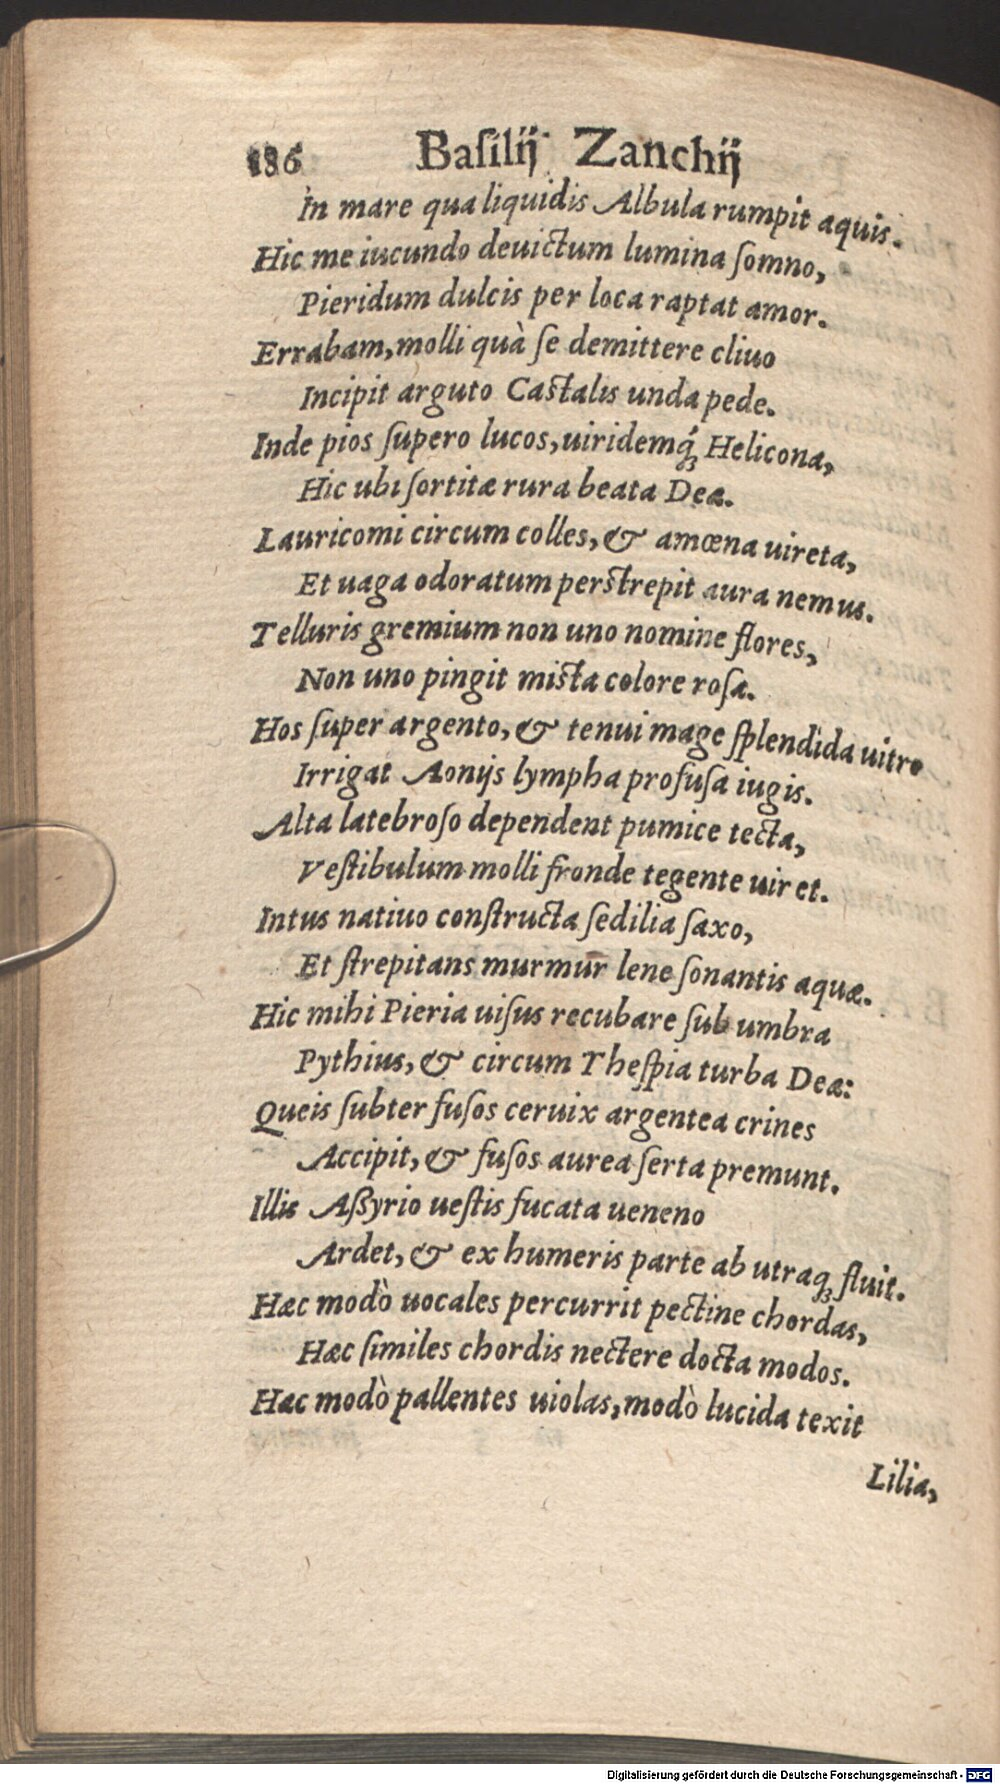 186 Baſilij Zanchij
In mare qua liquidis Albula rumpit aquis.
Hic me iucundo deuictum lumina ſomno,
Pieridum dulcis per loca raptat amor.
Errabam, molli quà ſe demittere cliuo
Incipit arguto Caſtalis unda pede.
Inde pios ſupero lucos, uiridemq́ꝫ Helicona,
Hic ubi ſortitæ rura beata Deæ.
Lauricomi circum colles, & amœna uireta,
Et uaga odoratum perſtrepit aura nemus.
Telluris gremium non uno nomine flores,
Non uno pingit miſta colore roſa.
Hos ſuper argento, & tenui mage ſplendida uitro
Irrigat Aonijs lympha profuſa iugis.
Alta latebroſo dependent pumice tecta,
Veſtibulum molli fronde tegente uiret.
Intus natiuo conſtructa ſedilia ſaxo,
Et ſtrepitans murmur lene ſonantis aquæ.
Hic mihi Pieria uiſus recubare ſub umbra
Pythius, & circum Theſpia turba Deæ:
Queis ſubter fuſos ceruix argentea crines
Accipit, & fuſos aurea ſerta premunt.
Illis Aßyrio ueſtis fucata ueneno
Ardet, & ex humeris parte ab utraqꝫ fluit.
Hæc modò uocales percurrit pectine chordas,
Hæc ſimiles chordis nectere docta modos.
Hæc modò pallentes uiolas, modò lucida texit
Lilia,
Digitalisierung gefördert durch die Deutsche Forschungsgemeinschaft - DFG